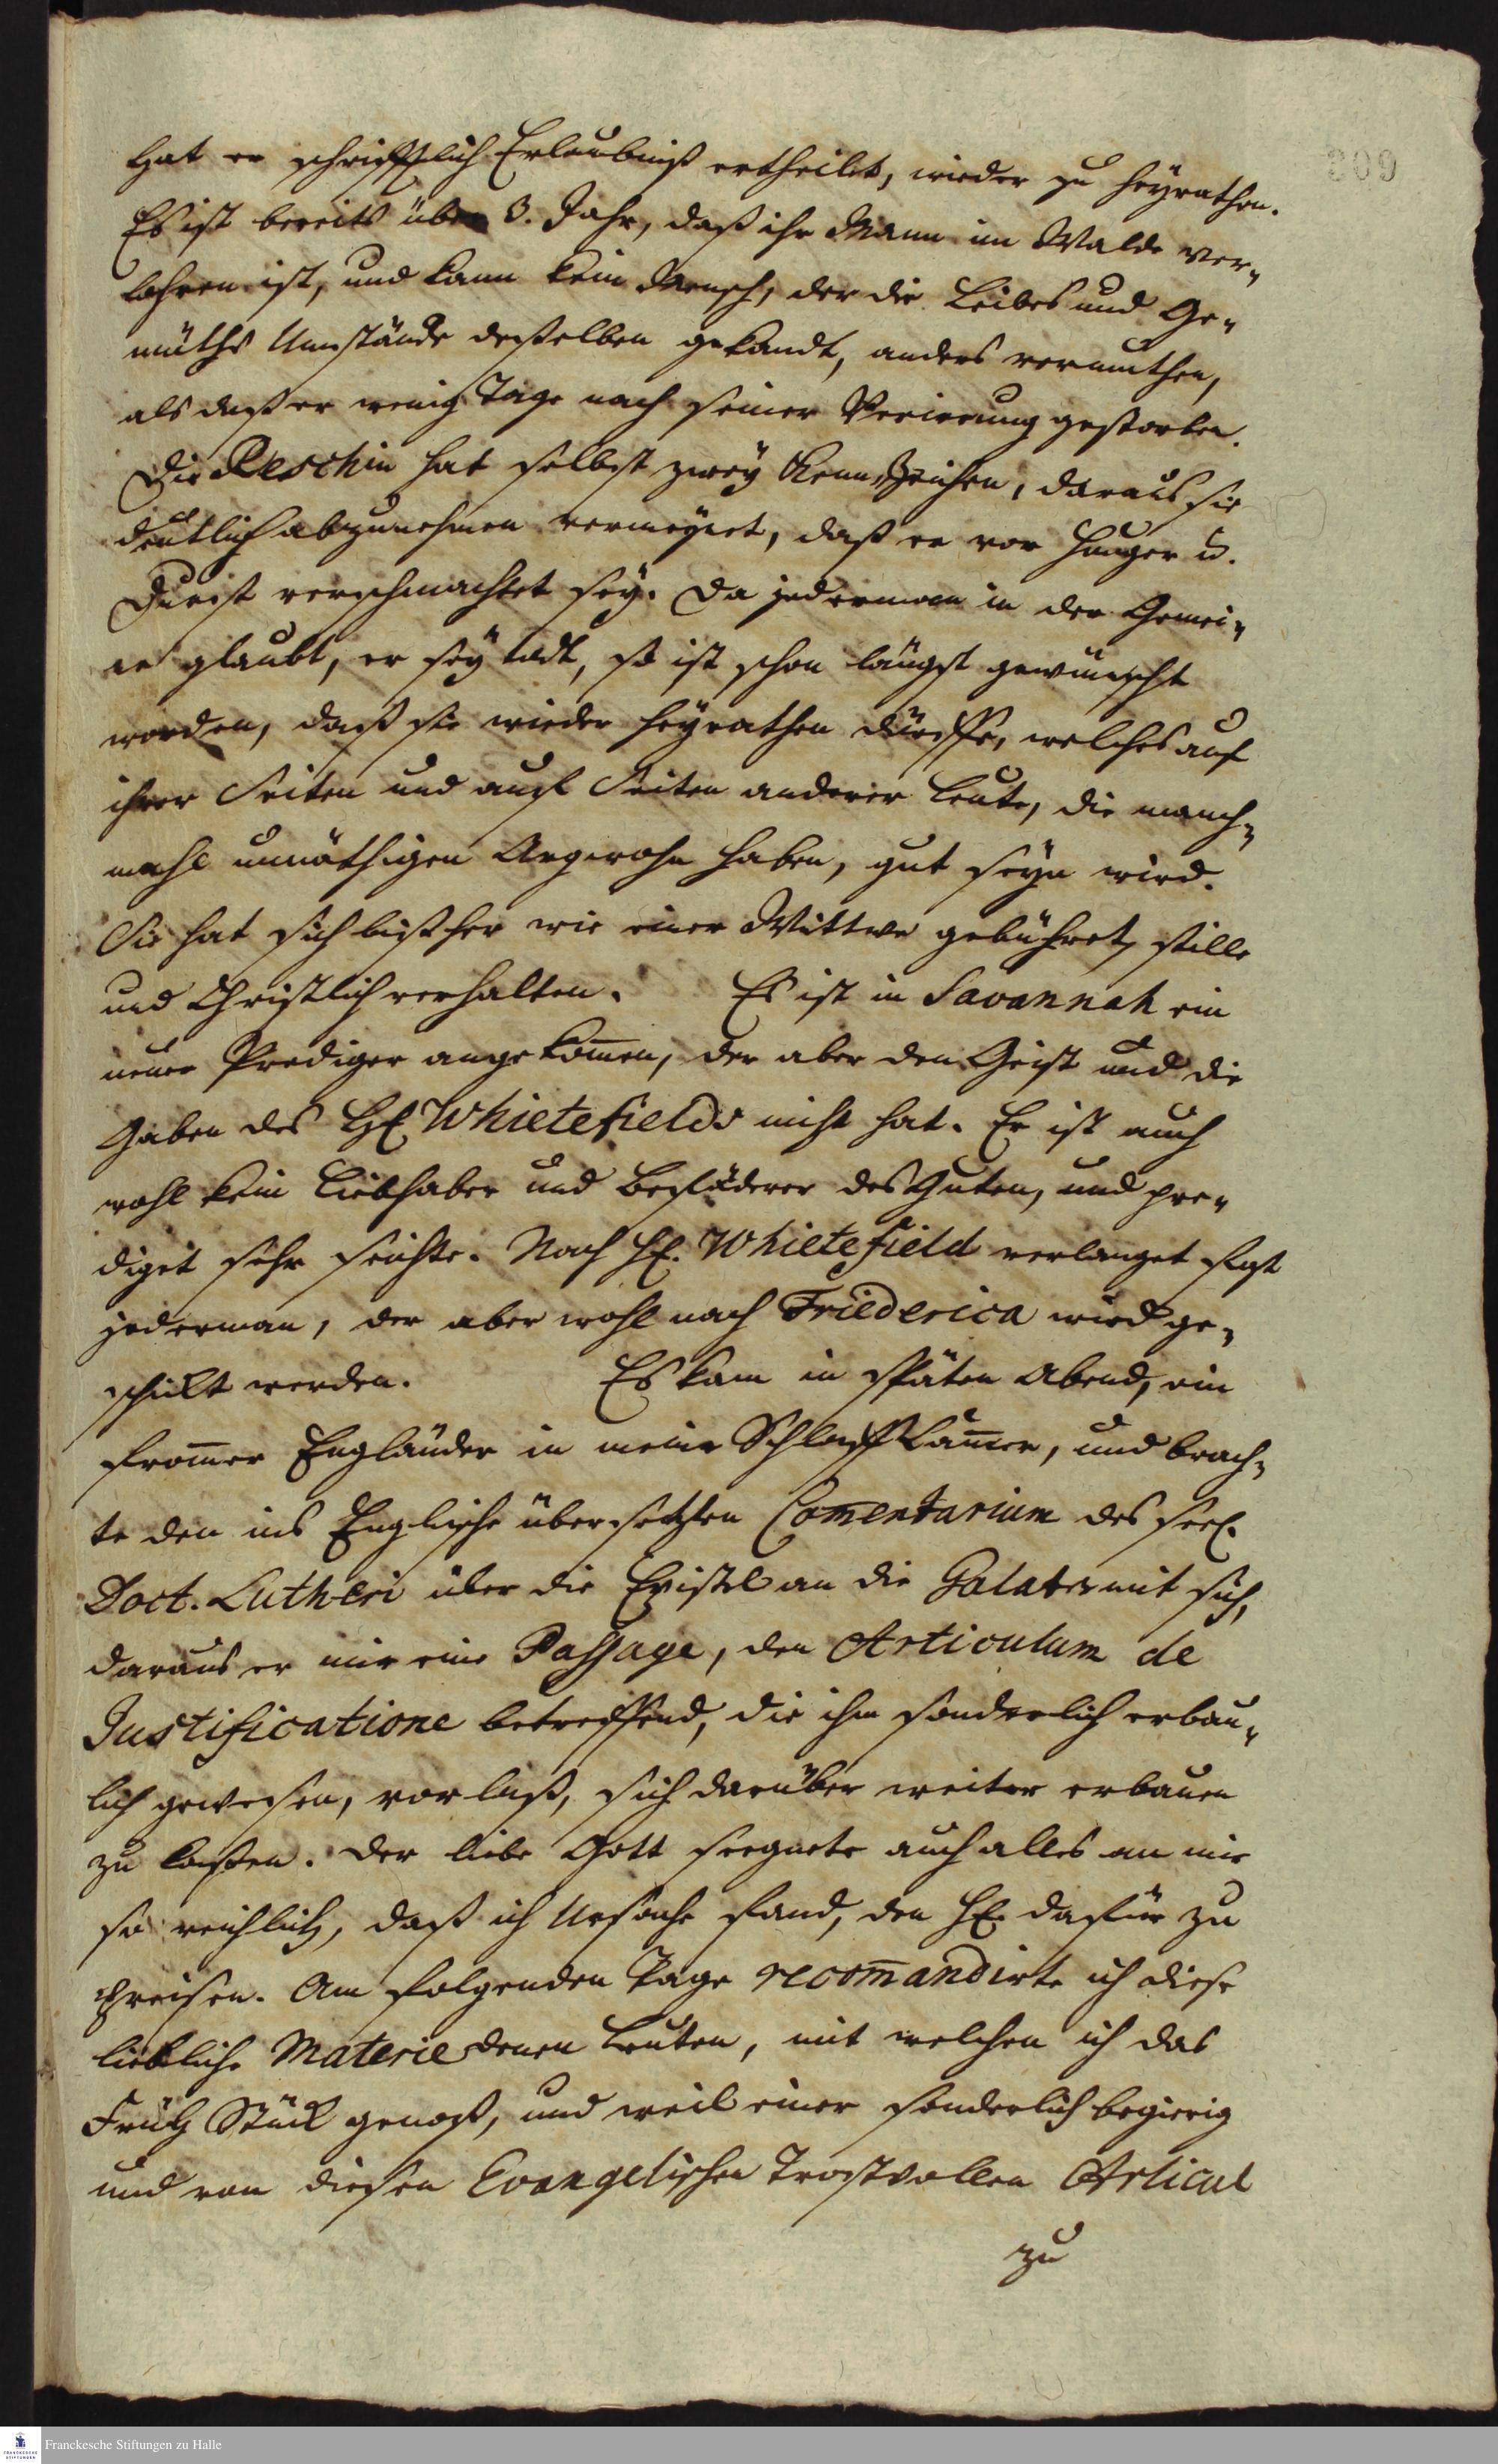 309
hat er schrifftlich Erlaubniß ertheilet, wieder zu heyrathen.
Es ist bereits über 3. Jahr, daß ihr Mann im Walde ver-
lohren ist, und kann kein Mensch, der die Leibes und Ge-
müths Umstände deßelben gekandt, anders vermuthen,
als daß er wenig Tage nach seiner Verirrung gestorben.
Die Reschin hat selbst zwey Kenn Zeichen, daraus sie
deutlich abzunehmen vermeynet, daß er vor Hunger u.
Durst verschmachtet sey. Da jederman in der Gemei-
ne glaubt, er sey todt, so ist schon längst gewünscht
worden, daß sie wieder heyrathen dürffe, welches auf
ihrer Seiten und auf Seiten anderer Leute, die manch-
mahl unnöthigen Argwohn haben, gut seyn wird.
Sie hat sich bißher wie einer Wittwe gebühret, stille
und Christlich verhalten. Es ist in Savannah ein
neuer Prediger angekom̄en, der aber den Geist und die
Gaben des H. Whietefields nicht hat. Er ist auch
wohl kein Liebhaber und Beföderer des Guten, und pre-
diget sehr seichte. Nach H. Whietefield verlanget fast
jederman, der aber wohl nach Friederica wird ge-
schickt werden. Es kam in späten Abend, ein
from̄er Engländer in meine Schlaffkam̄er, und brach-
te den ins Englische übersetzten Com̄entarium des seel.
Doct. Lutheri über die Epistel an die Galater mit sich,
daraus er mir eine Passage, den Articulum de
Justificatione betreffend, die ihm sonderlich erbau-
lich gewesen, vorlaß, sich darüber weiter erbauen
zu laßen. Der liebe Gott seegnete auch alles an mir
so reichlich, daß ich Ursache fand, den HE. dafür zu
preisen. Am folgenden Tage recom̄andirte ich diese
liebliche Materie denen Leuten, mit welchen ich das
Früh Stück genoß, und weil einer sonderlich begierig
und von diesen Evangelischen Trostvollen Articul
zu
FRANCKESCHE STIFTUNGEN
Franckesche Stiftungen zu Halle